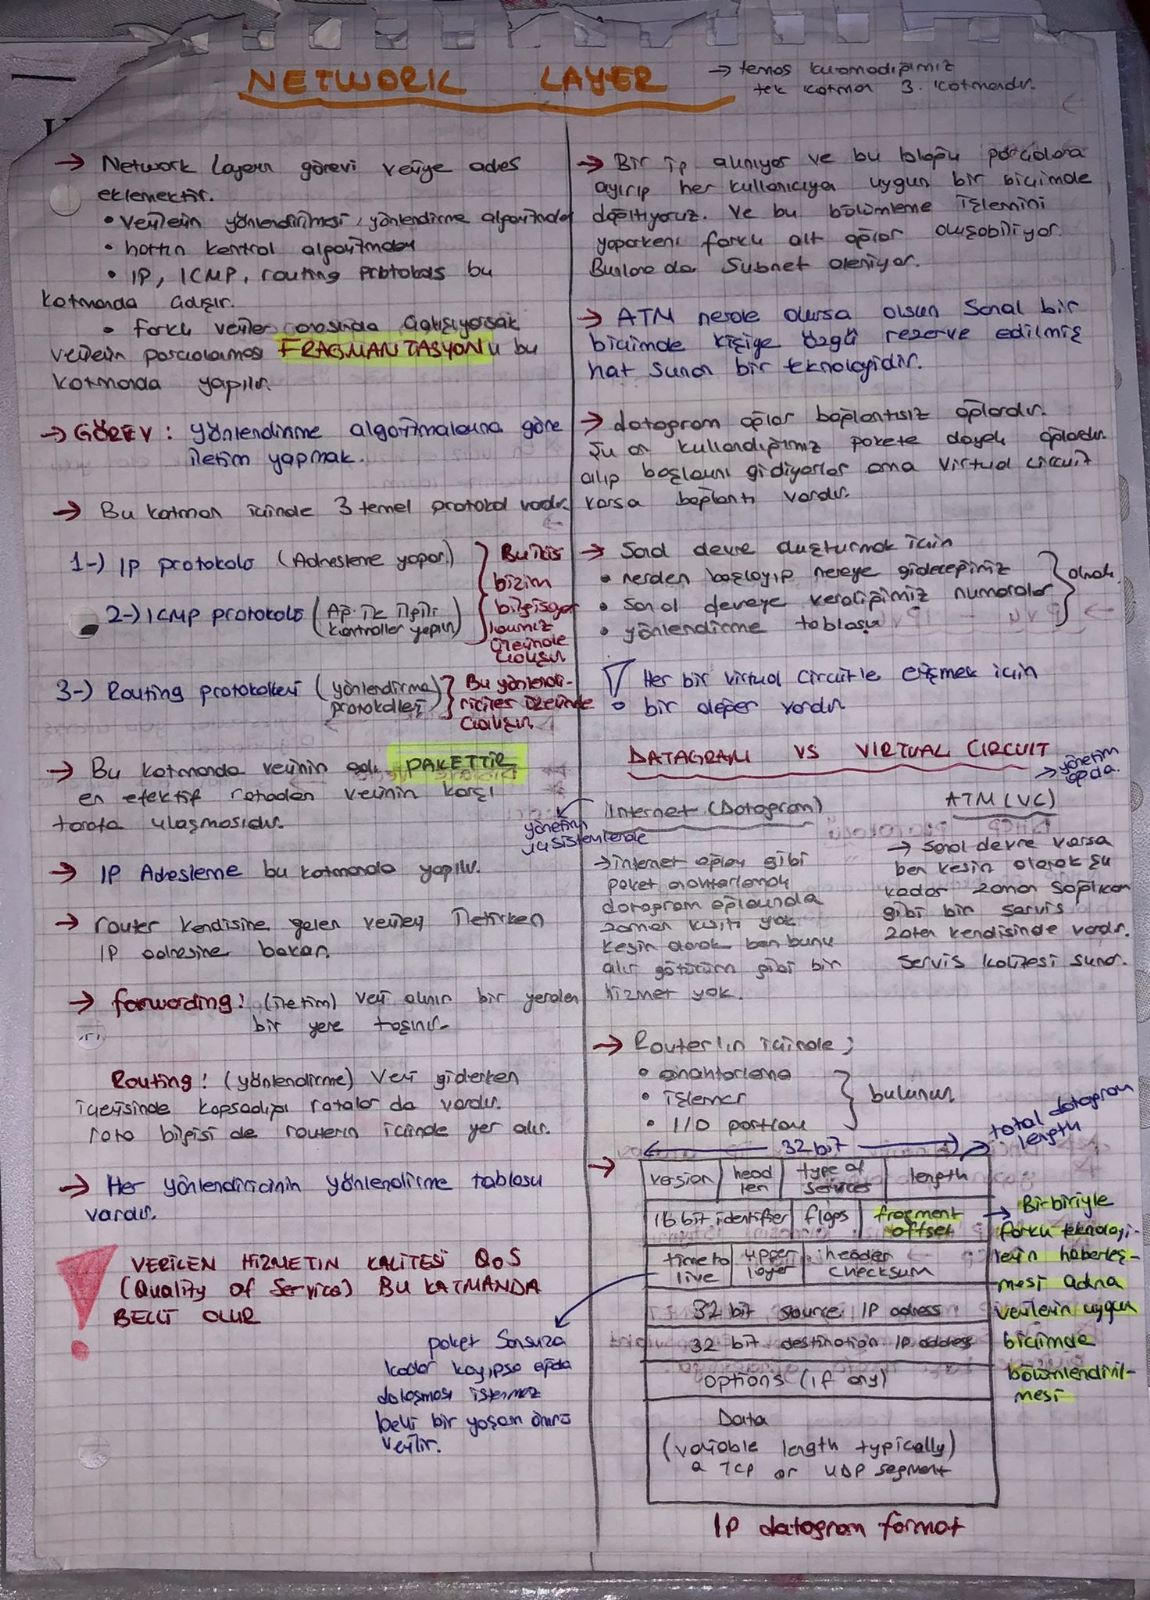 NETWORK LAYER
→ temas kuramadığımız
tek katman 3. katmandır.
→ Network layerın görevi veriye adres
eklemektir.
• verilerin yönlendirilmesi, yönlendirme algoritmaları
• hattın kontrol algoritmaları
• IP, ICMP, routing protokols bu
katmanda çalışır.
• farklı veriler arasında çalışıyorsak
verilerin parçalanması FRAGMANTASYONu bu
katmanda yapılır.
→ GÖREV : yönlendirme algoritmalarına göre
iletim yapmak.
→ Bu katman içinde 3 temel protokol vardır.
1-) IP protokolü (Adresleme yapar.)
2-) ICMP protokolü (Ağ ile ilgili
kontroller yapılır)
Bu ikisi
bizim
bilgisayar
larımız
üzerinde
çalışır
3-) Routing protokolleri (yönlendirme
protokolleri)
Bu yönlendi-
riciler üzerinde
çalışır.
→ Bu katmanda verinin adı PAKETTİR
en efektif rotadan verinin karşı
tarafa ulaşmasıdır.
→ IP Adresleme bu katmanda yapılır.
→ router kendisine gelen veriler iletirken
IP adresine bakar.
→ forwarding: (iletim) veri alınır bir yerden
bir yere taşınır.
Routing: (yönlendirme) Veri giderken
içerisinde kapsadığı rotalar da vardır.
rota bilgisi de routerın içinde yer alır.
→ Her yönlendiricinin yönlendirme tablosu
vardır.
! VERİLEN HİZMETİN KALİTESİ QoS
(Quality of Service) BU KATMANDA
BELLİ OLUR
paket sonsuza
kadar kayıpsa ağda
dolaşması istenmez
belli bir yaşam ömrü
verilir.
→ Bir ip alınıyor ve bu bloğu parçalara
ayırıp her kullanıcıya uygun bir biçimde
dağıtıyoruz. Ve bu bölümleme işlemini
yaparken farklı alt ağlar oluşabiliyor.
Bunlara da Subnet deniyor.
→ ATM nerde olursa olsun Sanal bir
biçimde kişiye özgü rezerve edilmiş
hat sunan bir teknolojidir.
→ datagram ağlar bağlantısız ağlardır.
Şu an kullandığımız pakete dayalı ağlardır.
alıp başlarını gidiyorlar ama virtual circuit
varsa bağlantı vardır.
→ Sanal devre oluşturmak için
• nerden başlayıp nereye gideceğimiz
• sanal devreye verdiğimiz numaralar
• yönlendirme tablosu
olmalı.
Her bir virtual circuitle erişmek için
• bir değer vardır.
DATAGRAM VS VIRTUAL CIRCUIT
Internet (Datagram)
yönetim
uç sistemlerde
→ internet ağları gibi
paket anahtarlamalı
datagram ağlarında
zaman kısıtı yok
kesin olarak ben bunu
alır götürürüm gibi bir
hizmet yok.
ATM (VC)
→ yönetim
ağda.
→ Sanal devre varsa
ben kesin olarak şu
kadar zaman sağlıcam
gibi bir servis
zaten kendisinde vardır.
Servis kalitesi sunar.
→ Router'ın içinde ;
• anahtarlama
• işlemci
• I/O portları
bulunur.
32 bit
total datagram
length
version
head
len
type of
services
length
16 bit identifier
flags
fragment
offset
→ Bir-biriyle
farklı teknoloji-
lerin haberleş-
mesi adına
verilerin uygun
biçimde
bölümlendiril-
mesi
time to
live
upper
layer
header
checksum
32 bit source IP adress
32 bit destination IP address
options (if any)
Data
(variable length typically)
a TCP or UDP segment
IP datagram format